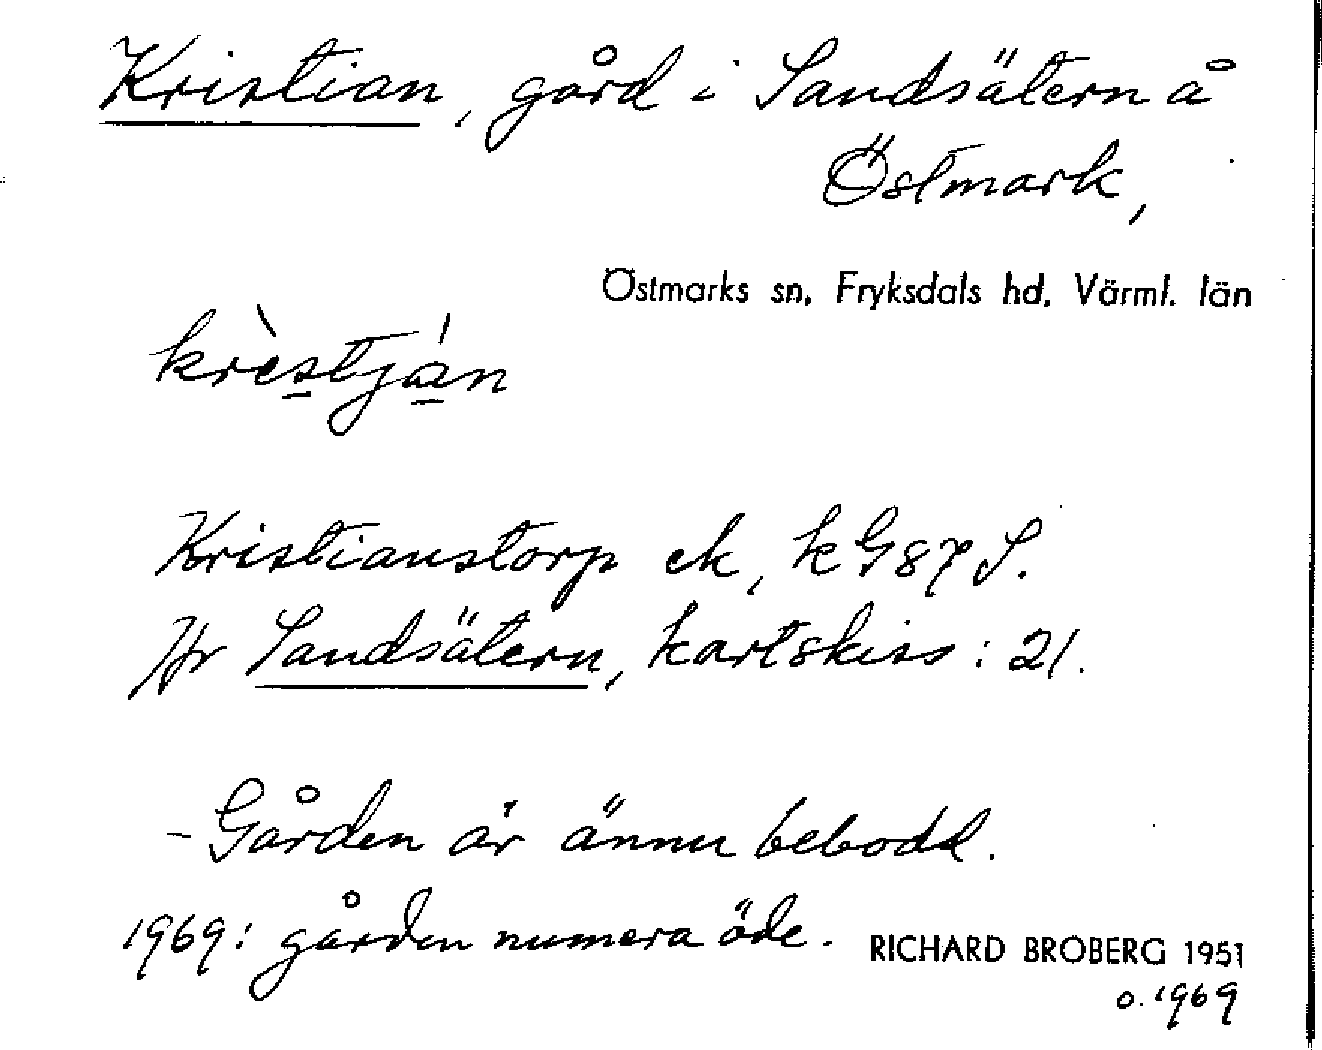 Kristian, gård i Sandsätern å
Östmark,
Östmarks sn, Fryksdals hd, Värml. län
krèstján
Kristianstorp ek, k G87 S.
Jfr Sandsätern, kartskiss: 21.
- Gården är ännu bebodd.
1969: gården numera öde. RICHARD BROBERG 1951
o. 1969